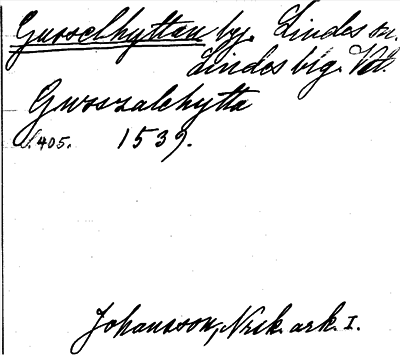 Gusselhyttan by. Lindes sn.
Lindes blg. Vstl.
Gwszalehytta
S. 405. 1539.
Johansson, Nrsk. ark. I.